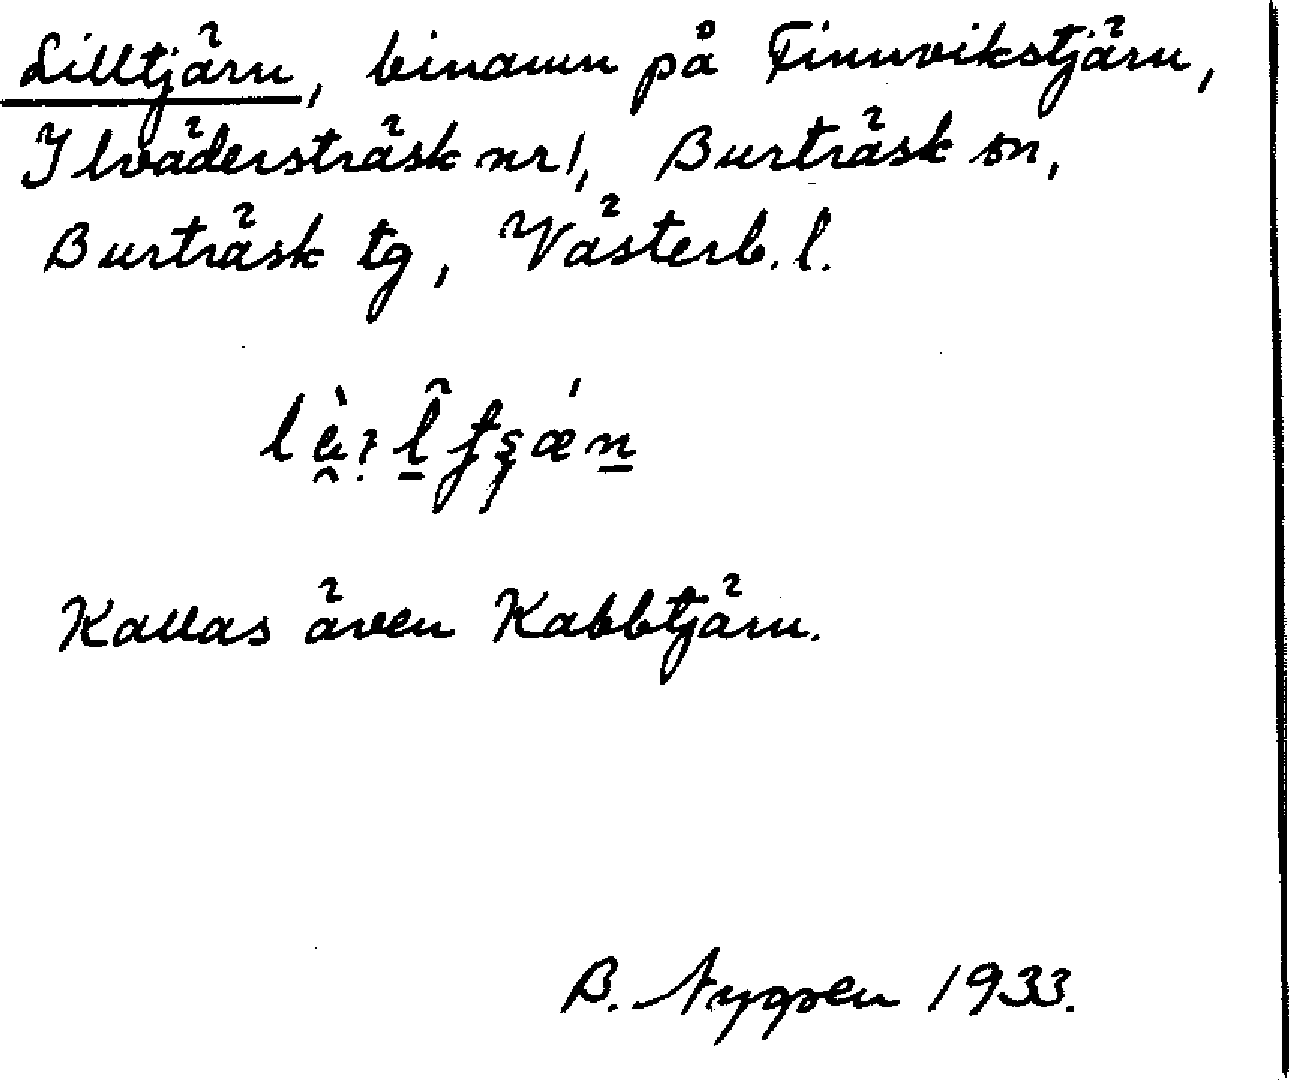 Lilltjärn, binamn på Finnvikstjärn,
Ilvädersträsk nr 1, Burträsk sn,
Burträsk tg, Västerb. l.
Kallas även Kabbtjärn.
B. Nygren 1933.